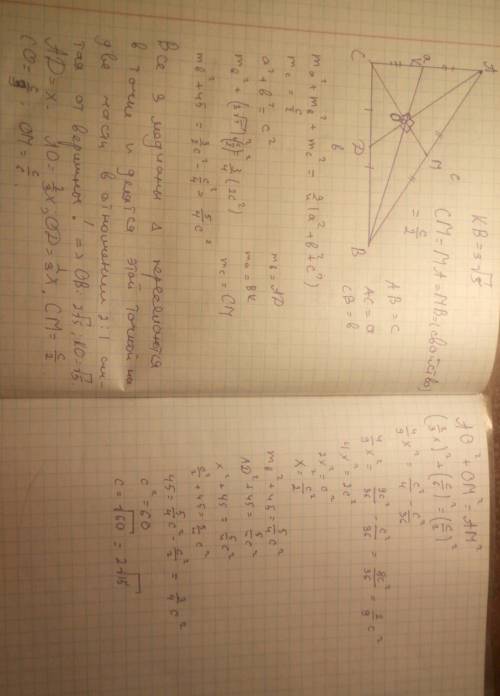 A
C
B
K
a
M
c
O
D
b
KB = 3√5
CM = MA = MB = (свойство)
= c/2
AB = c
AC = a
CB = b
m_a² + m_b² + m_c² = 3/4 (a² + b² + c²)
m_c = c/2
a² + b² = c²
m_b = AD
m_a = BK
m_c = CM
m_b² + (3√5)² + (c/2)² = 3/4 (2c²)
m_b² + 45 = 3/2 c² - c²/4 = 5/4 c²
Все 3 медианы Δ пересекаются
в точке и делятся этой точкой на
две части в отношении 2:1 счи-
тая от вершины. => OB = 2√5; KO = √5.
AD = x. AO = 2/3 x; OD = 1/3 x. CM = c/2
CO = c/3; OM = c/6.
AO² + OM² = AM²
(2/3 x)² + (c/6)² = (c/2)²
4/9 x² = c²/4 - c²/36
4/9 x² = 9c²/36 - c²/36 = 8c²/36 = 2/9 c²
4x² = 2c²
2x² = c²
x² = c²/2
m_b² + 45 = 5/4 c²
AD² + 45 = 5/4 c²
x² + 45 = 5/4 c²
c²/2 + 45 = 5/4 c²
45 = 5/4 c² - c²/2 = 3/4 c²
c² = 60
c = √60 = 2√15